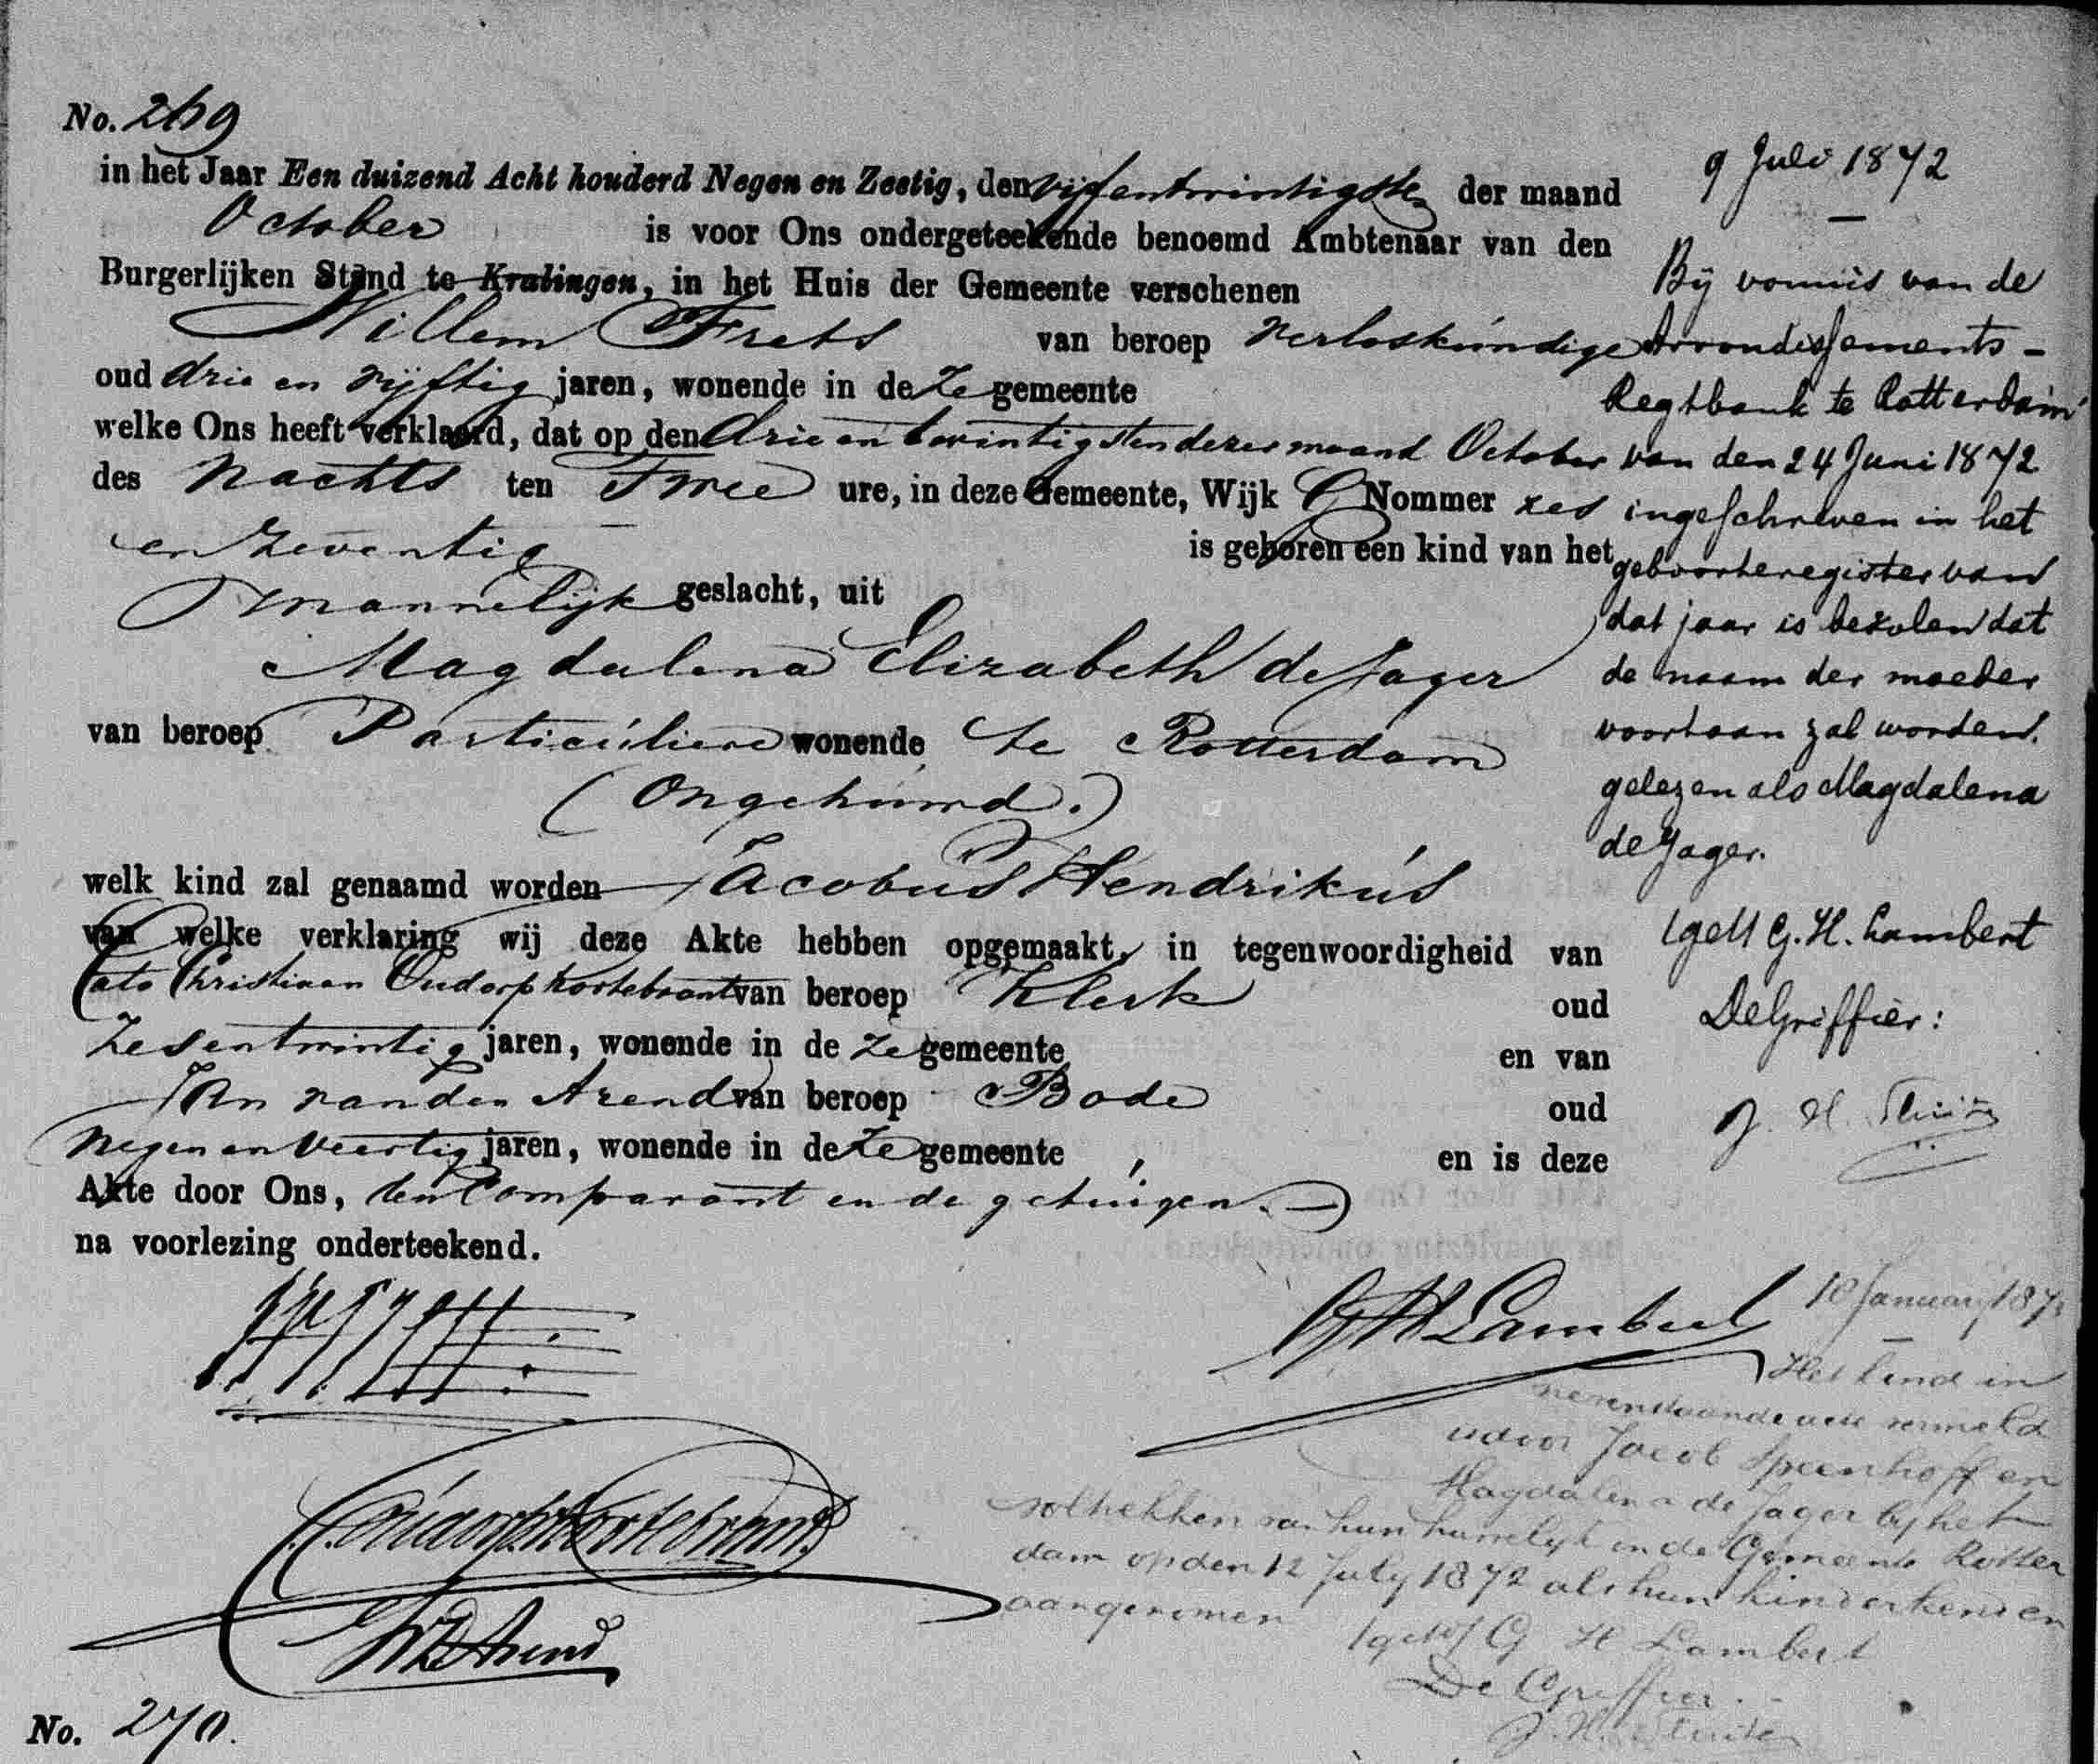 No. 269
in het Jaar Een duizend Acht honderd Negen en Zestig, den vijfentwintigste der maand
October is voor Ons ondergeteekende benoemd Ambtenaar van den
Burgerlijken Stand te Kralingen, in het Huis der Gemeente verschenen
Willem Frets van beroep Verloskundige
oud drie en vijftig jaren, wonende in deze gemeente
welke Ons heeft verklaard, dat op den drie en twintigsten dezer maand October
des Nachts ten Twee ure, in deze Gemeente, Wijk G Nommer zes
en zeventig is geboren een kind van het
mannelijk geslacht, uit
Magdalena Elizabeth de Jager
van beroep Particuliere wonende te Rotterdam
(Ongehuwd.)
welk kind zal genaamd worden Jacobus Hendrikus
van welke verklaring wij deze Akte hebben opgemaakt, in tegenwoordigheid van
Cato Christiaan Oudorp Kortebrant van beroep Klerk oud
Zesentwintig jaren, wonende in deze gemeente en van
Jan van den Arend van beroep Bode oud
Negen en Veertig jaren, wonende in deze gemeente, en is deze
Akte door Ons, den Comparant en de getuigen.
na voorlezing onderteekend.
W Frets
GH Lambert
CC Oudorp Kortebrant
JvD Arend
No. 270.
9 Juli 1872
Bij vonnis van de
Arrondissements-
Regtbank te Rotterdam
van den 24 Juni 1872
ingeschreven in het
geboorteregister van
dat jaar is bevolen dat
de naam der moeder
voortaan zal worden
gelezen als Magdalena
de Jager.
(get) G. H. Lambert
De Griffier:
J. H.
10 January 187
Het kind in
nevenstaande acte vermeld
is door Jacob Speenhoff en
Magdalena de Jager bij het
voltrekken van hun huwelijk in de Gemeente Rotter
dam op den 12 July 1872 als hun kind erkend en
aangenomen
(get) G H Lambert
De Griffier.
J. H.